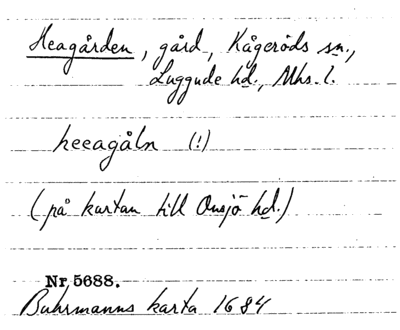 Heagården, gård, Kågeröds sn.,
Luggude hd., Mhs. l.
heeagåln (!)
(på kartan till Onsjö hd.)
Nr 5688.
Buhrmanns karta 1684